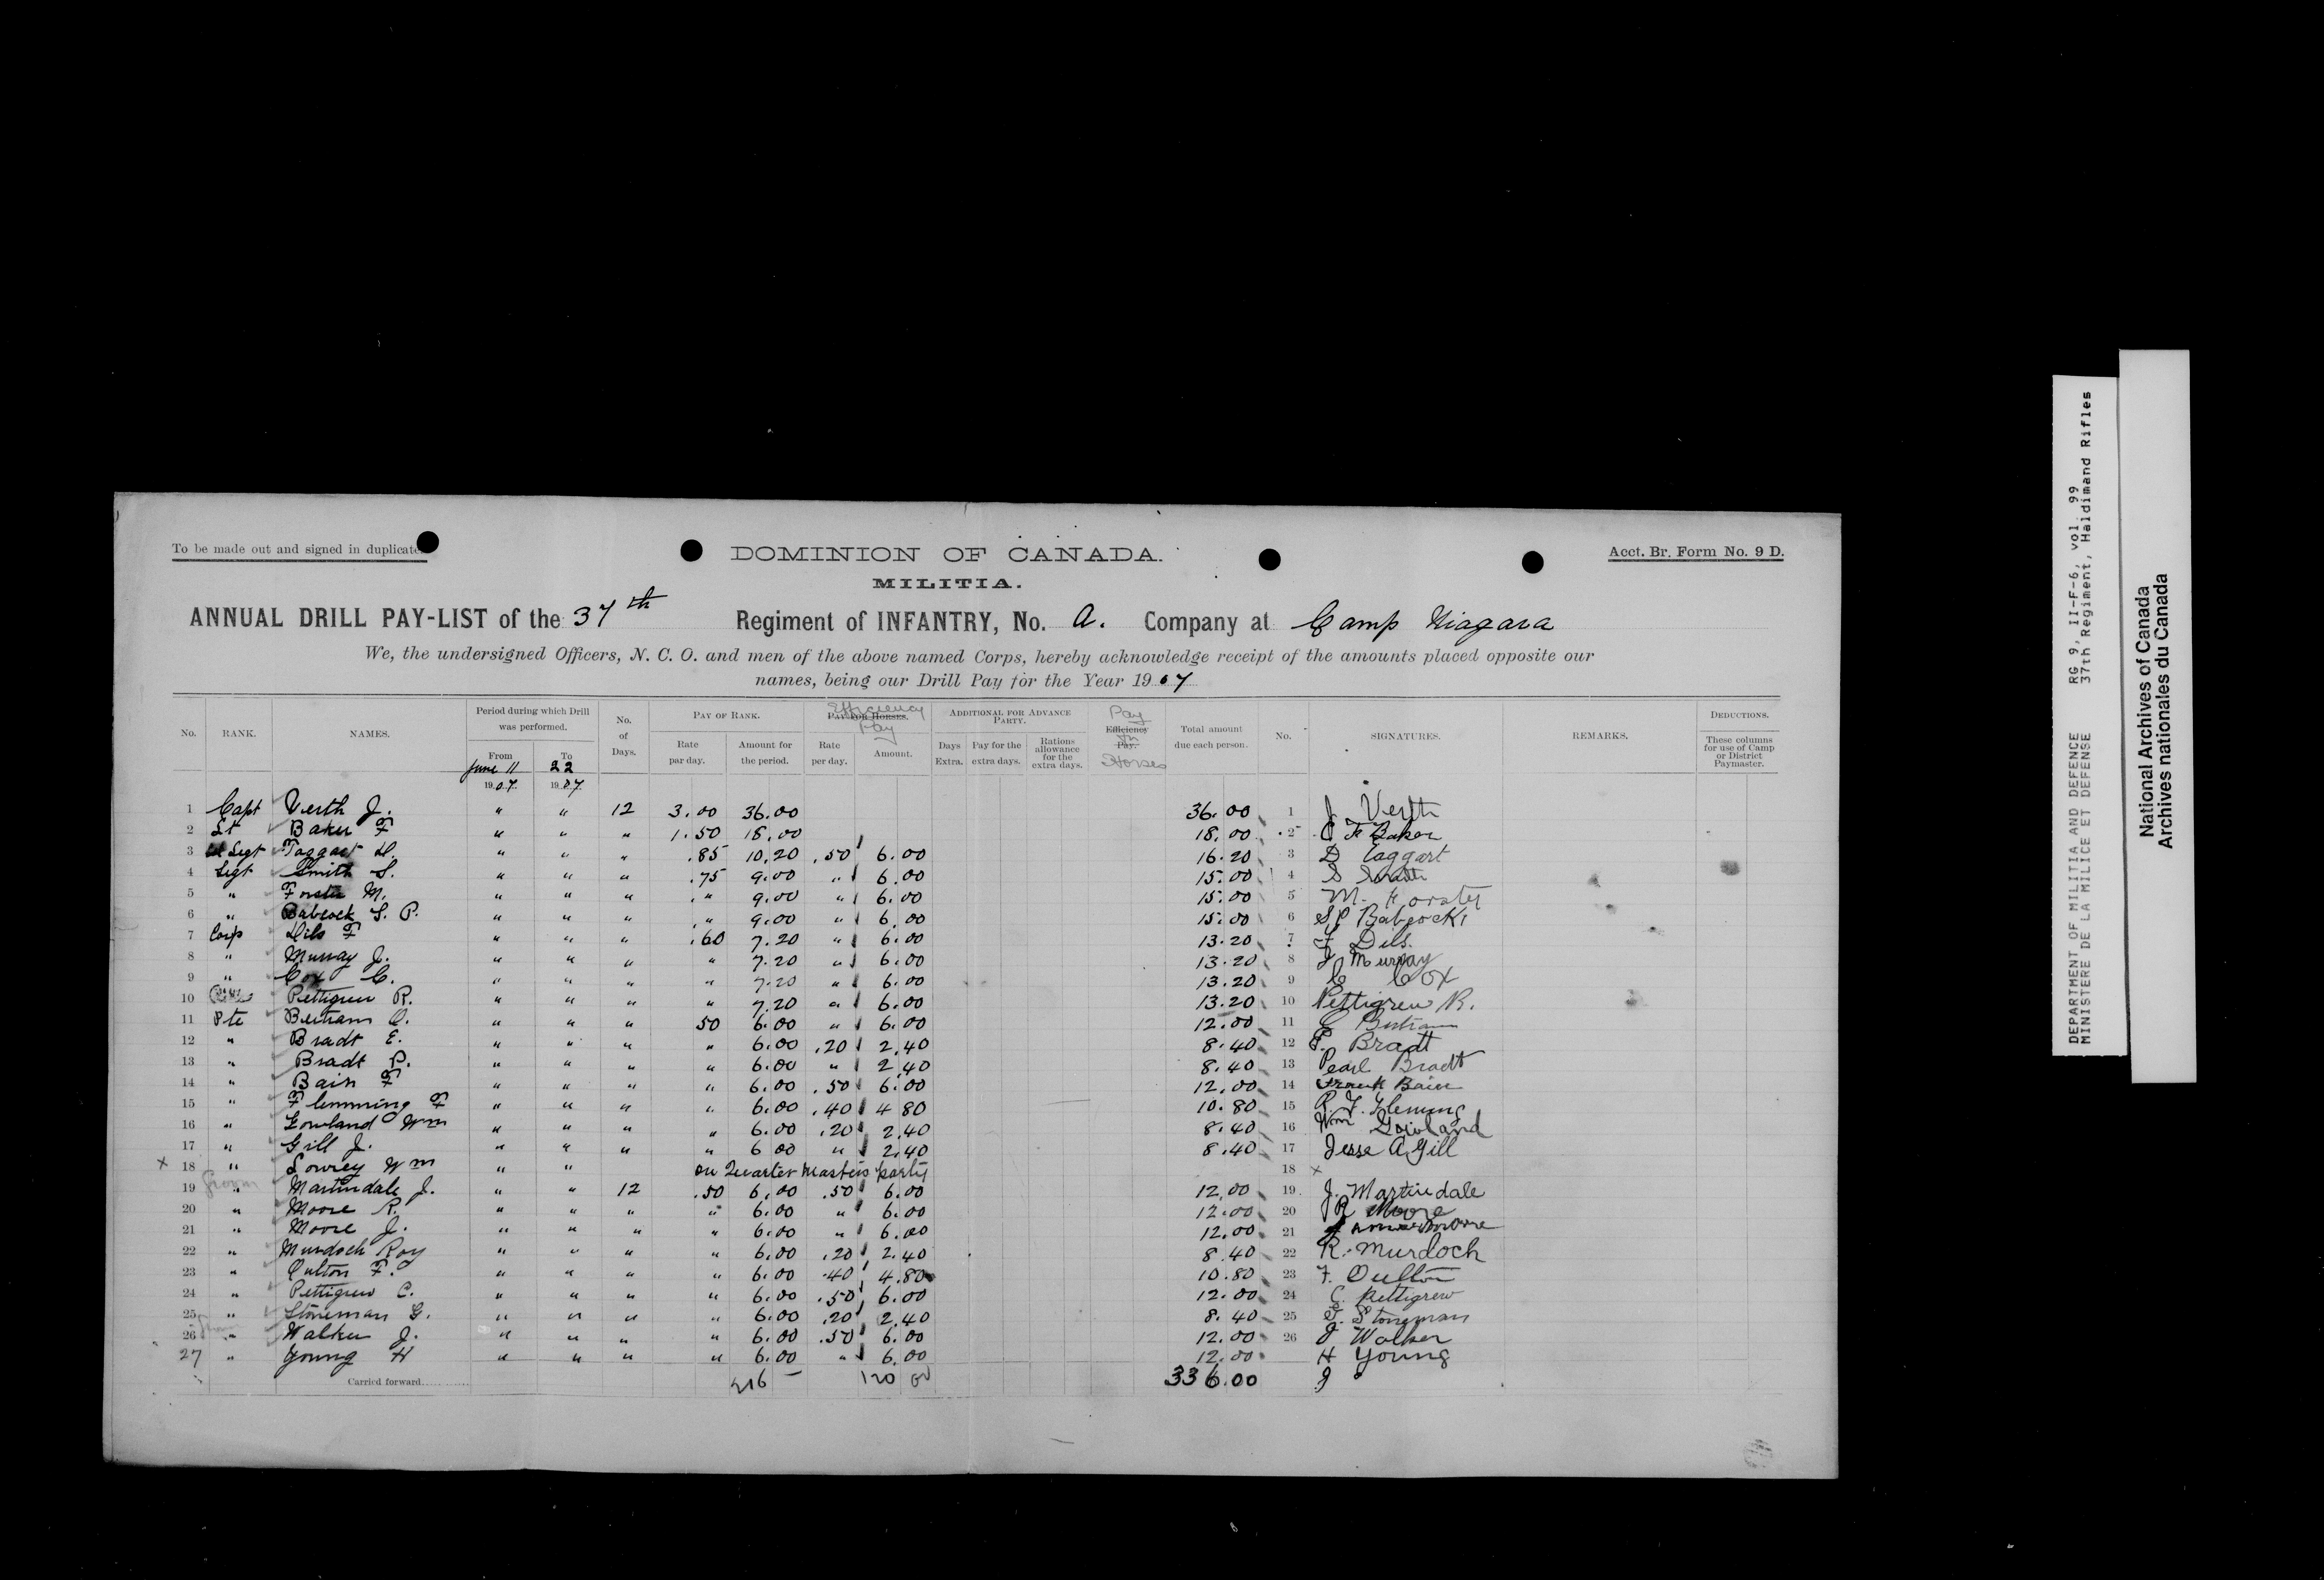 To be made out and signed in duplicate.
DOMINION OF CANADA.
Acct. Br. Form No. 9 D.
MILITIA.
ANNUAL DRILL PAY-LIST of the 37th Regiment of INFANTRY, No. A. Company at Camp Niagara
We, the undersigned Officers, N. C. O. and men of the above named Corps, hereby acknowledge receipt of the amounts placed opposite our
names, being our Drill Pay for the Year 1907
No. RANK. NAMES. Period during which Drill was performed. From June 11 1907 To 22 1907 No. of Days. PAY OF RANK. Rate par day. Amount for the period. PAY FOR HORSES. Efficiency Pay Rate per day. Amount. ADDITIONAL FOR ADVANCE PARTY. Days Extra. Pay for the extra days. Rations allowance for the extra days. Efficiency Pay. Pay for Horses Total amount due each person. No. SIGNATURES. REMARKS. DEDUCTIONS. These columns for use of Camp or District Paymaster.
1 Capt Verth J. " " 12 3.00 36.00 36.00 1 J Verth
2 Lt Baker F " " " 1.50 18.00 18.00 2 F Baker
3 Segt Taggart D. " " " .85 10.20 .50 6.00 16.20 3 D Taggart
4 Segt Smith S. " " " .75 9.00 " 6.00 15.00 4 S Smith
5 " Forster M. " " " " 9.00 " 6.00 15.00 5 M. Forster
6 " Babcock S. P. " " " " 9.00 " 6.00 15.00 6 S P Babcock
7 Corp Dils F " " " .60 7.20 " 6.00 13.20 7 F Dils.
8 " Murray J. " " " " 7.20 " 6.00 13.20 8 J Murray
9 " Cox C. " " " " 7.20 " 6.00 13.20 9 C Cox
10 Pettigrew R. " " " " 7.20 " 6.00 13.20 10 Pettigrew R.
11 Pte Bertram C. " " " 50 6.00 " 6.00 12.00 11 C Bertram
12 " Bradt E. " " " " 6.00 .20 2.40 8.40 12 E. Bradt
13 " Bradt P. " " " " 6.00 " 2.40 8.40 13 Pearl Bradt
14 " Bain F " " " " 6.00 .50 6.00 12.00 14 Frank Bain
15 " Flemming F " " " " 6.00 .40 4 80 10.80 15 R. F. Fleming
16 " Gowland Wm " " " " 6.00 .20 2.40 8.40 16 Wm Gowland
17 " Gill J. " " " " 6 00 " 2.40 8.40 17 Jesse A Gill
x 18 " Lowrey Wm " " on Quarter Masters party 18 x
19 Groom " Martindale J. " " 12 .50 6.00 .50 6.00 12.00 19. J. Martindale
20 " Moore R. " " " " 6.00 " 6.00 12.00 20 R Moore
21 " Moore J. " " " " 6.00 " 6.00 12.00 21 James Moore
22 " Murdoch Roy " " " " 6.00 .20 2.40 8.40 22 R. Murdoch
23 " Oulton F. " " " " 6.00 .40 4.80 10.80 23 F. Oulton
24 " Pettigrew C. " " " " 6.00 .50 6.00 12.00 24 C. Pettigrew
25 " Stoneman G. " " " " 6.00 .20 2.40 8.40 25 G. Stoneman
26 " Walker J. " " " " 6.00 .50 6.00 12.00 26 J Walker
27 " Young H " " " " 6.00 " 6.00 12.00 H Young
Carried forward 216 – 120 00 336.00
DEPARTMENT OF MILITIA AND DEFENCE RG 9, II-F-6, vol. 99
MINISTERE DE LA MILICE ET DEFENSE 37th Regiment, Haldimand Rifles
National Archives of Canada
Archives nationales du Canada